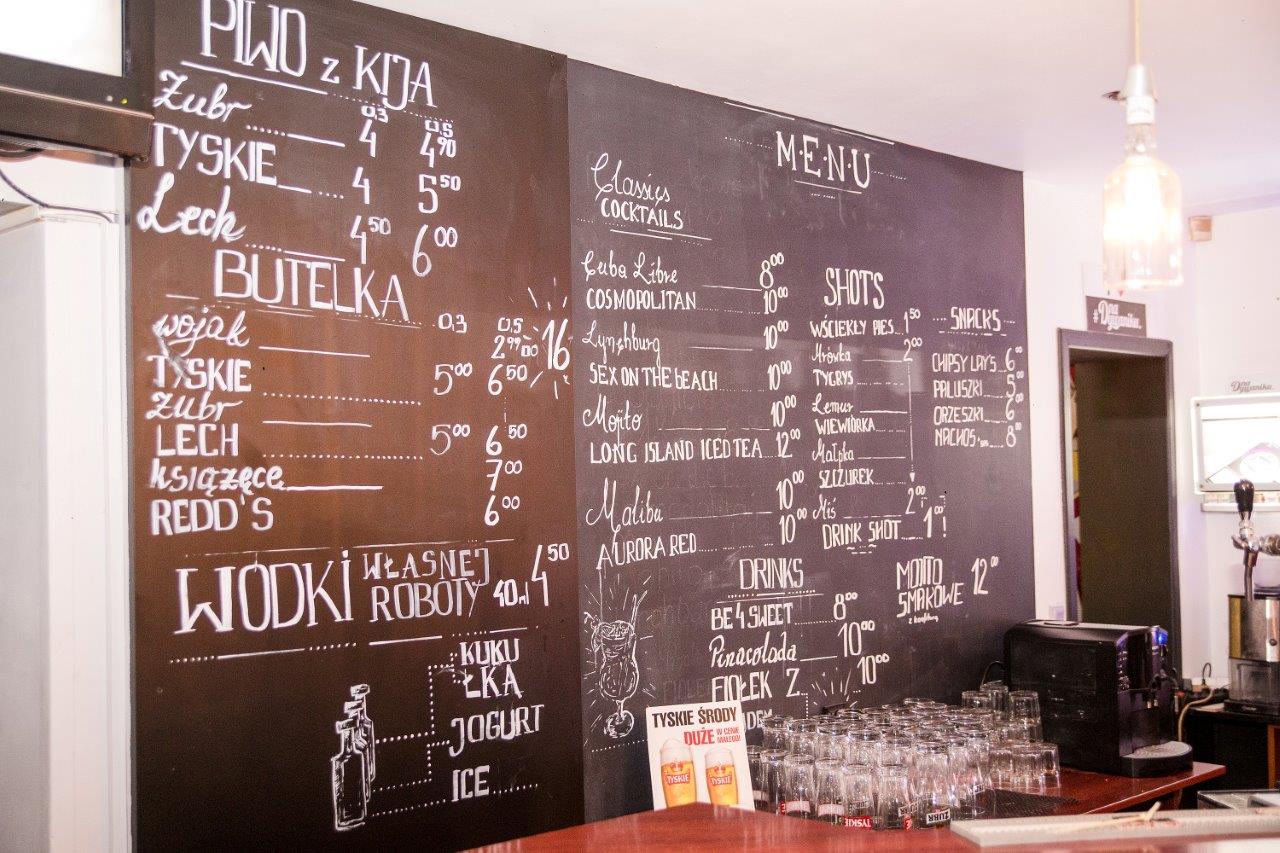 PIWO z KIJA
0,3 0,5
Żubr 4 4 90
TYSKIE 4 5 50
Lech 4 50 6 00
BUTELKA
0,3 0,5
wojak 2 99 DO 16
TYSKIE 5 00 6 50
Żubr
LECH 5 00 6 50
książęce 7 00
REDD'S 6 00
WÓDKI WŁASNEJ ROBOTY 40ml 4 50
KUKU
ŁKA
JOGURT
ICE
M·E·N·U
Classics
COCKTAILS
Cuba Libre 8 00
COSMOPOLITAN 10 00
Lynchburg 10 00
SEX ON THE BEACH 10 00
Mojito 10 00
LONG ISLAND ICED TEA 12 00
Malibu 10 00
AURORA RED 10 00
SHOT'S
WŚCIEKŁY PIES 1 50
Mrówka 2 00
TYGRYS
Lemur
WIEWIÓRKA
Małpka
SZCZUREK
Miś 2 00
DRINK SHOT 1 00 !
SNACK'S
CHIPSY LAY'S 6 00
PALUSZKI 5 00
ORZESZKI 6 00
NACHOS 8 00
DRINKS
BE 4 SWEET 8 00
Pinacolada 10 00
FIOŁEK Z 10 00
MOJITO
SMAKOWE 12 00
TYSKIE ŚRODY
DUŻE W CENIE
MAŁEGO!
TYSKIE
TYSKIE
TYSKIE
ŻUBR
#Dna
Dgganiku.